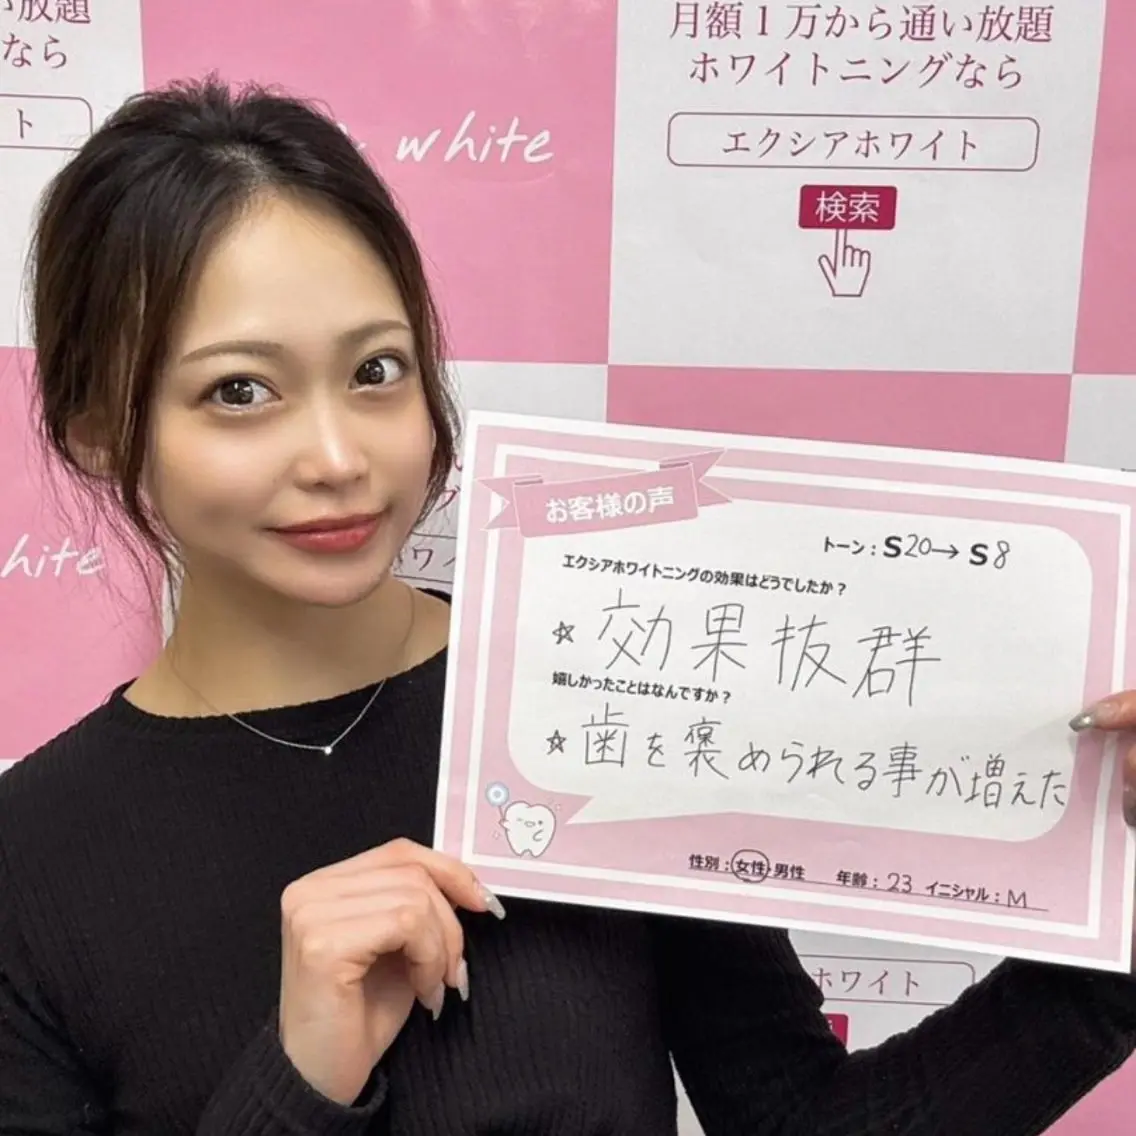 い放題
なら
ト
white
月額1万から通い放題
ホワイトニングなら
エクシアホワイト
検索
hite
お客様の声
トーン:S20→S8
エクシアホワイトニングの効果はどうでしたか?
☆効果抜群
嬉しかったことはなんですか?
☆歯を褒められる事が増えた
性別:女性・男性 年齢:23 イニシャル:M
ホワイト